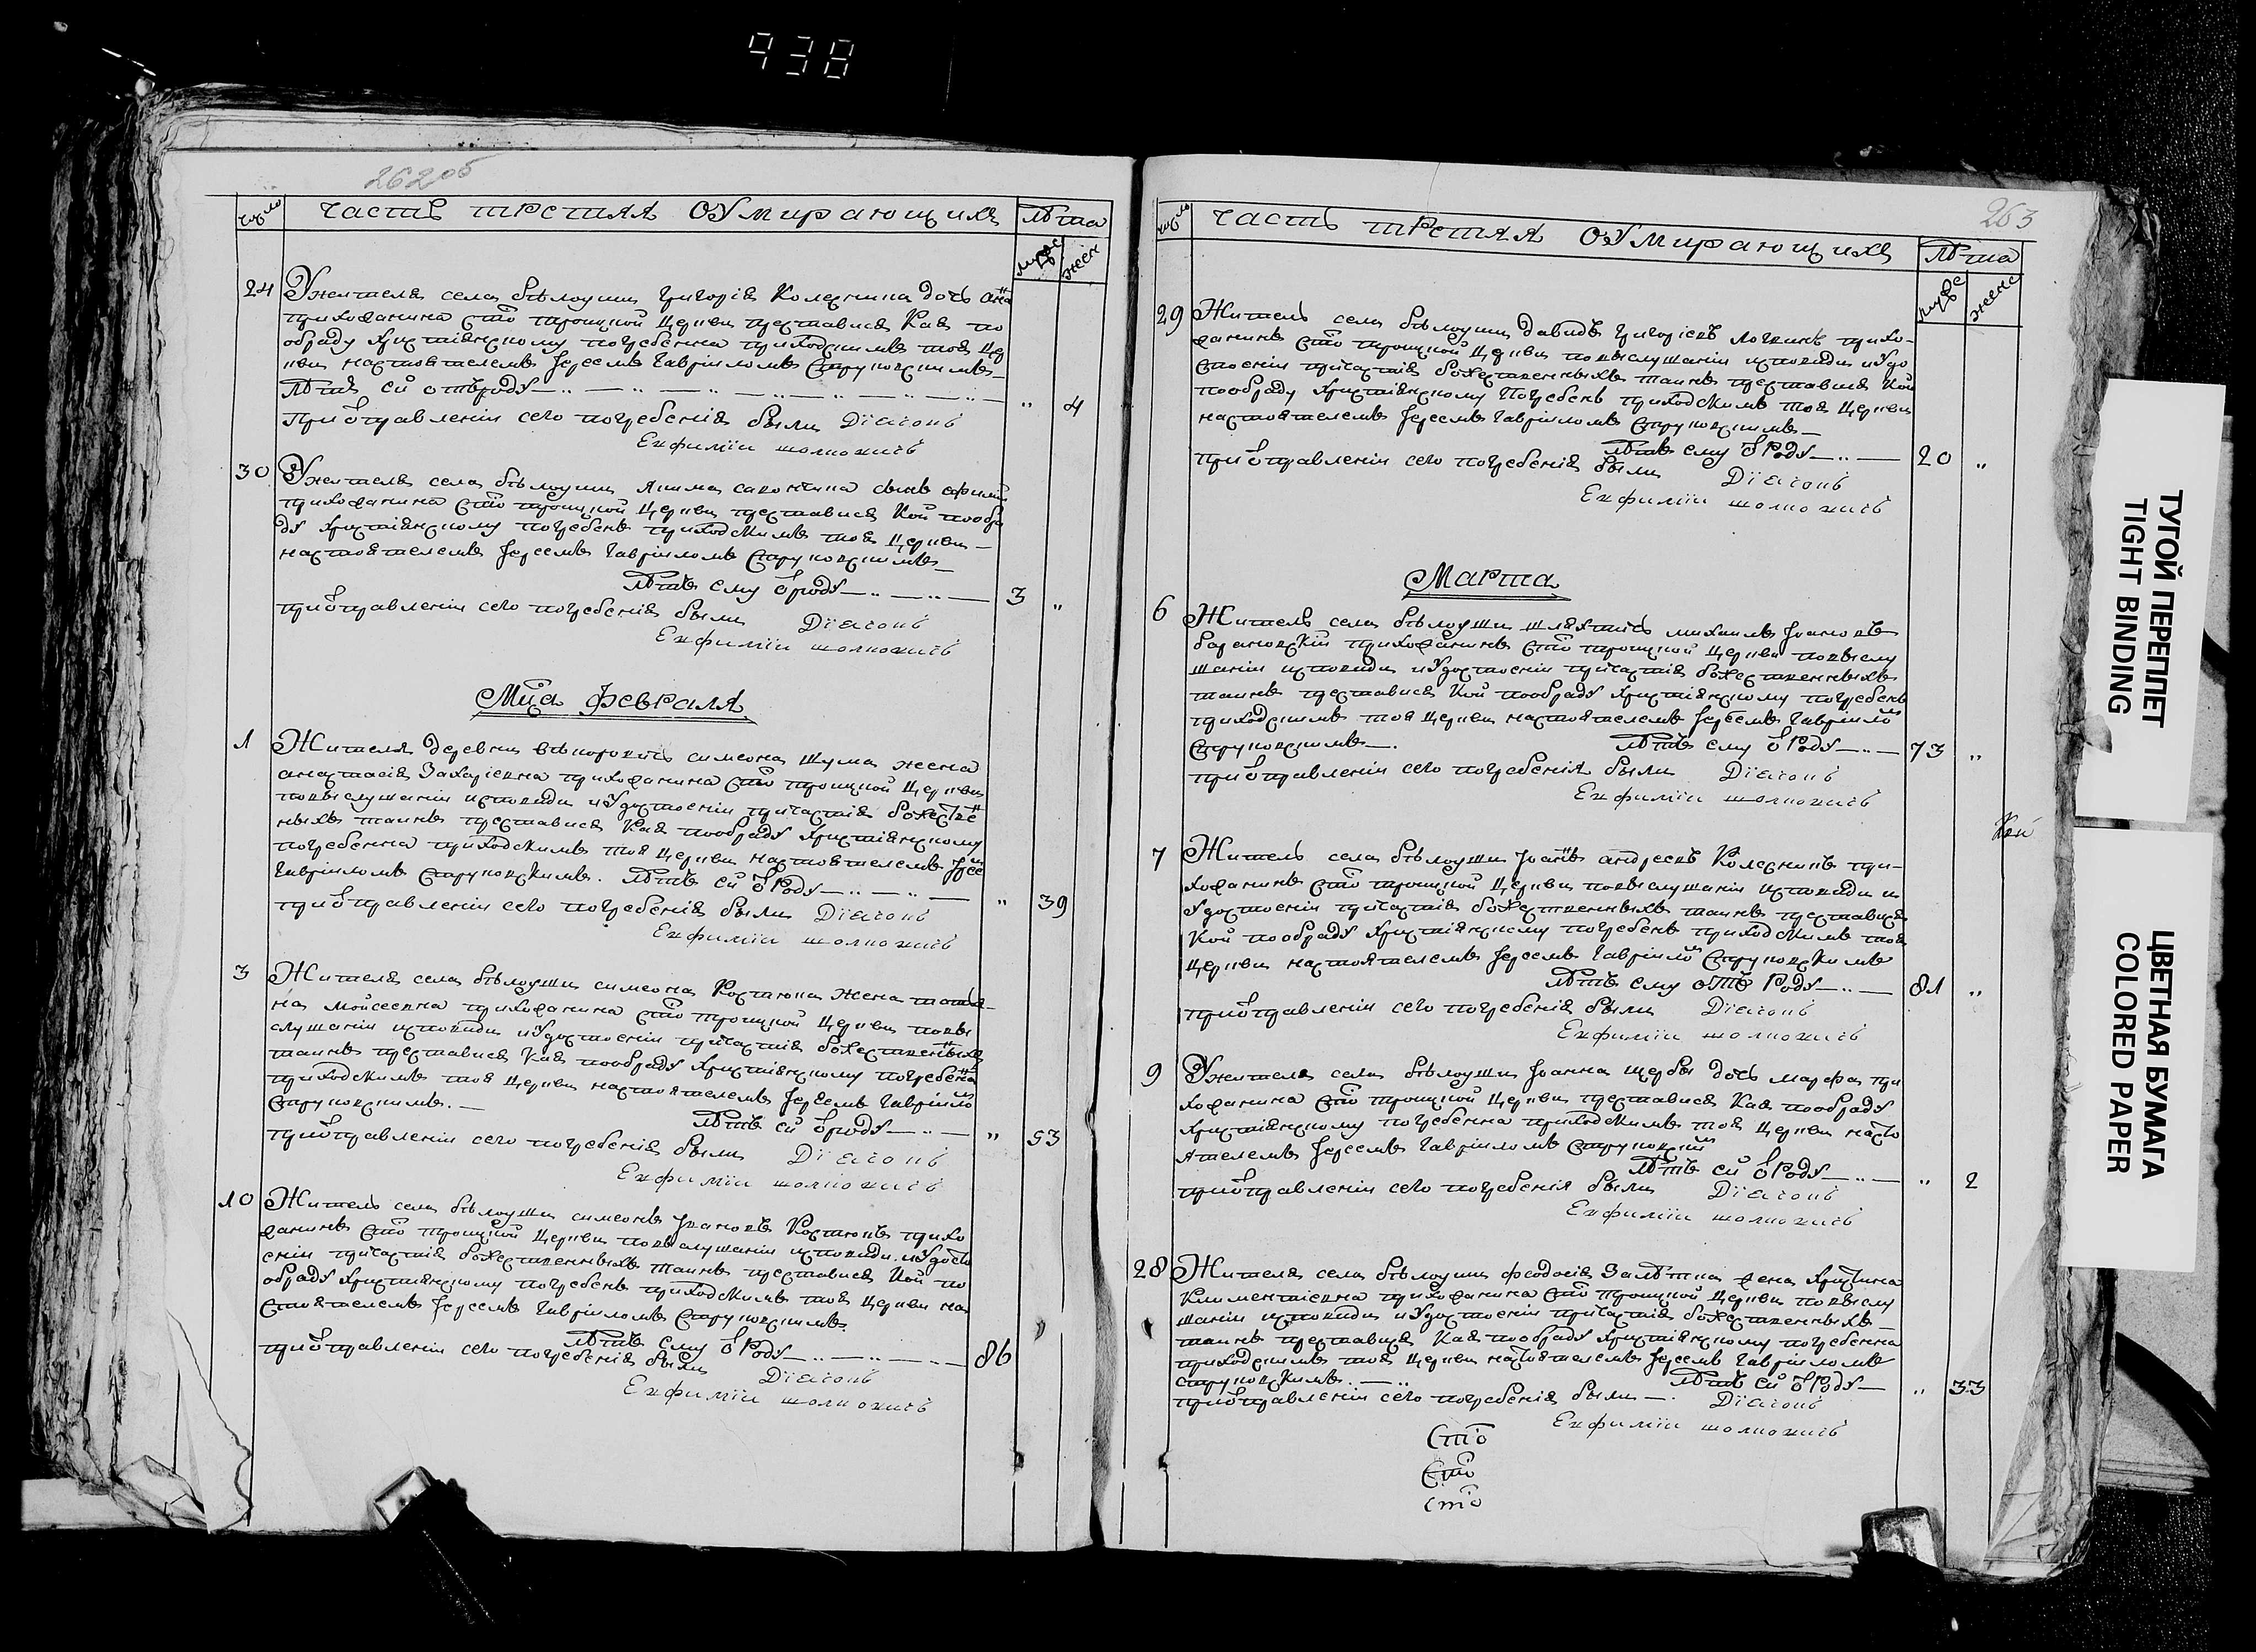 938
262об
число
часть третая оумирающихъ
лѣта
муже
жен
24 Ужителя села бѣлоуши григорія Колесника дочь анна
прихожанина сто троицкой церкви преставися Кая по
обряду християнскому погребенна приходскимъ тоя цер
кви настоятелемъ Іереемъ Гавріиломъ Струковскимъ
лѣтъ ей отъроду „ 4
При отправленіи сего погребенія были Діаконъ
Екфимїи шолкович
30 Ужителя села бѣлоуши Якима сынъ
прихожанина сто троицкой церкви преставися Кой пообря
ду християнскому погребенъ приходскимъ тоя церкви
настоятелемъ Іереемъ Гавріиломъ Струковскимъ
лѣтъ ему ѿроду 3 „
приѿправленіи сего погребенія были Діаконъ
Екфимїи шолкович
Мца Февраля
1 Жителя деревни симеона Шума жена
анастасія Захаріевна прихожанина сто троицкой церкви
повыслушаніи исповѣди иУдостоеніи причастія божестве
ныхъ таинъ преставися Кая пообряду християнскому
погребенна приходскимъ тоя церкви настоятелемъ Іерее
Гавріиломъ Струковскимъ. лѣтъ ей ѿРоду „ 39
приѿправленіи сего погребенія были Діаконъ
Екфимїи шолкович
3 Жителя села бѣлоуши симеона Костюка жена татья
на мойсеевна прихожанина сто троицкой церкви повы
слушаніи исповѣди иУдостоеніи причастія божественныхъ
таинъ преставися Кая пообряду християнскому погребена
приходскимъ тоя церкви настоятелемъ Іереемъ Гавріило
Струковскимъ.
лѣтъ ей ѿроду „ 53
приѿправленіи сего погребенія были Діаконъ
Екфимїи шолкович
10 Житель села бѣлоуши симеонъ Ивановъ Костюкъ прихо
жанинъ сто троицкой церкви повыслушаніи исповѣди иУдосто
еніи причастія божественныхъ таинъ преставися Кой по
обряду християнскому погребенъ приходскимъ тоя церкви на
стоятелемъ Іереемъ Гавріиломъ Струковскимъ
лѣтъ ему ѿРоду 86
приѿправленіи сего погребенія были Діаконъ
Екфимїи шолкович
263
число
часть третая оумирающихъ
лѣта
муже
жене
29 Житель села бѣлоуши давидъ григоріевъ логвинъ прихо-
жанинъ сто троицкой церкви повыслушаніи исповѣди иУдо
стоеніи причастія божественныхъ таинъ преставися Кой
пообряду християнскому Погребенъ приходскимъ тоя церкви
настоятелемъ Іереемъ Гавріиломъ Струковскимъ
лѣтъ ему ѿРоду 20 „
приѿправленіи сего погребенія были Діаконъ
Екфимїи шолкович
Марта
6 Житель села бѣлоуши шляхтичъ михаилъ Ивановъ
барановскій прихожанинъ сто троицкой церкви повыслу
шаніи исповѣди иУдостоеніи причастія божественныхъ
таинъ преставися Кой пообряду християнскому погребенъ
приходскимъ тоя церкви настоятелемъ Іереемъ Гавріило
Струковскимъ. лѣтъ ему ѿРоду 73 „
приѿправленіи сего погребенія были Діаконъ
Екфимїи шолкович
Кой
7 Житель села бѣлоуши Іоаннъ андреевъ Колесникъ при-
хожанинъ сто троицкой церкви повыслушаніи исповѣди и
Удостоеніи причастія божественныхъ таинъ преставися
Кой пообряду християнскому погребенъ приходскимъ тоя
церкви настоятелемъ Іереемъ Гавріило Струковскимъ
лѣтъ ему отъ Роду 81 „
приѿправленіи сего погребенія были Діаконъ
Екфимїи шолкович
9 Ужителя села бѣлоуши Іоанна щербы дочь марфа при
хожанина сто троицкой церкви преставися Кая пообряду
християнскому погребенна приходскимъ тоя церкви насто
ятелемъ Іереемъ Гавріиломъ Струковским
лѣтъ ей ѿРоду „ 2
приѿправленіи сего погребенія были Діаконъ
Екфимїи шолкович
28 Жителя села бѣлоуши феодосія жена християна
Климентіевна прихожанина сто троицкой церкви повыслу
шаніи исповѣди иУдостоеніи причастія божественныхъ
таинъ преставися Кая пообряду християнскому погребенна
приходскимъ тоя церкви настоятелемъ Іереемъ Гавріиломъ
струковскимъ. лѣтъ ей ѿРоду „ 33
приѿправленіи сего погребенія были Діаконъ
Екфимїи шолкович
Сто
Сто
сто
ТУГОЙ ПЕРЕПЛЕТ
TIGHT BINDING
ЦВЕТНАЯ БУМАГА
COLORED PAPER